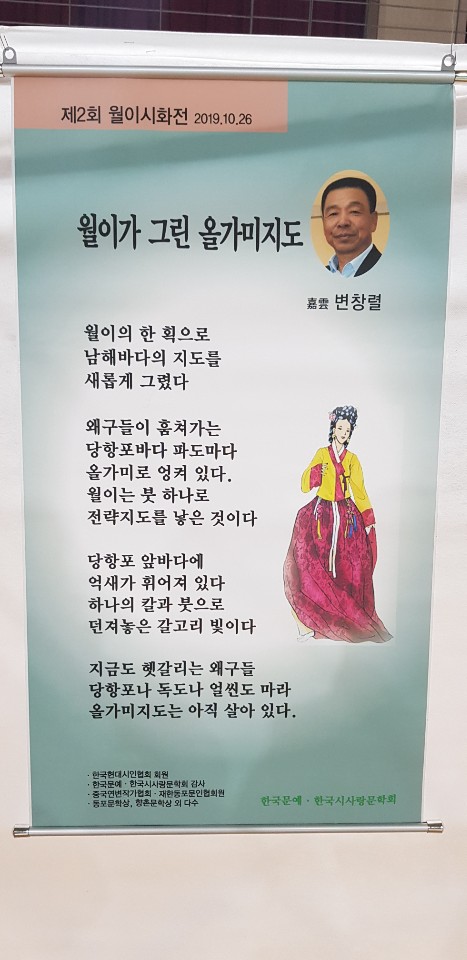 제2회 월이시화전 2019.10.26
월이가 그린 올가미지도
嘉雲 변창렬
월이의 한 획으로
남해바다의 지도를
새롭게 그렸다
왜구들이 훔쳐가는
당항포바다 파도마다
올가미로 엉켜 있다.
월이는 붓 하나로
전략지도를 낳은 것이다
당항포 앞바다에
억새가 휘어져 있다
하나의 칼과 붓으로
던져놓은 갈고리 빛이다
지금도 헷갈리는 왜구들
당항포나 독도나 얼씬도 마라
올가미지도는 아직 살아 있다.
· 한국현대시인협회 회원
· 한국문예 · 한국시사랑문학회 감사
· 중국연변작가협회 · 재한동포문인협회원
· 동포문학상, 향촌문학상 외 다수
한국문예 · 한국시사랑문학회